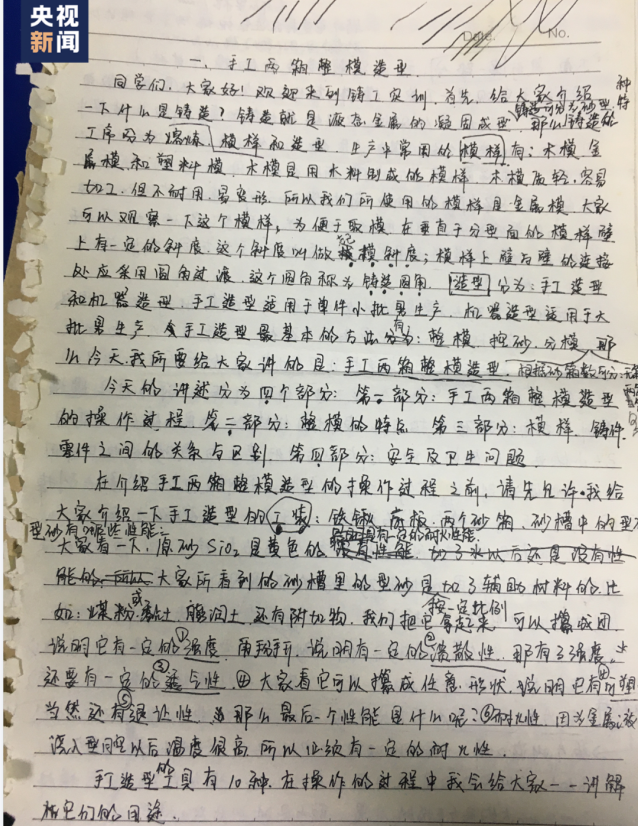 央视
新闻
Date. No.
一、手工两箱整模造型
同学们,大家好!欢迎来到铸工实训,首先,给大家介绍
一下什么是铸造?铸造就是液态金属的凝固成型 那么铸造的
工序分为熔炼、模样和造型 生产中常用的模样有:木模、金
属模和塑料模,木模是用木料制成的模样,木模质轻,容易
加工,但不耐用,易变形,所以我们所使用的模样是金属模,大家
可以观察一下这个模样,为便于取模,在垂直于分型面的模样壁
上有一定的斜度,这个斜度叫做起模斜度;模样上壁与壁的连接
处应采用圆角过渡,这个圆角称为铸造圆角。造型分为:手工造型
和机器造型,手工造型适用于单件小批量生产,机器造型适用于大
批量生产,手工造型最基本的方法有:整模、挖砂、分模,那
么今天我所要给大家讲的是:手工两箱整模造型,
今天的讲述分为四个部分:第一部分:手工两箱整模造型
的操作过程,第二部分:整模的特点 第三部分:模样、铸件、
零件之间的关系与区别,第四部分:安全及卫生问题
在介绍手工两箱整模造型的操作过程之前,请先允许我给
大家介绍一下手工造型的工装:铁锹、底板、两个砂箱、砂槽中的型
型砂有哪些性能:
大家看一下,原砂SiO₂是黄色的 加了水以后还是没有性
能的 大家所看到的砂槽里的型砂是加了辅助材料的,比
如:煤粉或黏土、膨润土,还有附加物,我们把它按一定比例拿起来 可以攥成团,
说明它有一定的①强度,用手掰开,说明有一定的②溃散性,那有了强度
还要有一定的③透气性,④大家看它可以攥成任意形状,说明它有可塑
当然还有⑤退让性,那么最后一个性能是什么呢?⑥耐火性,因为金属液
浇入型腔以后温度很高,所以必须有一定的耐火性.
手工造型的工具有10种,在操作的过程中我会给大家一一讲解
它们的用途.